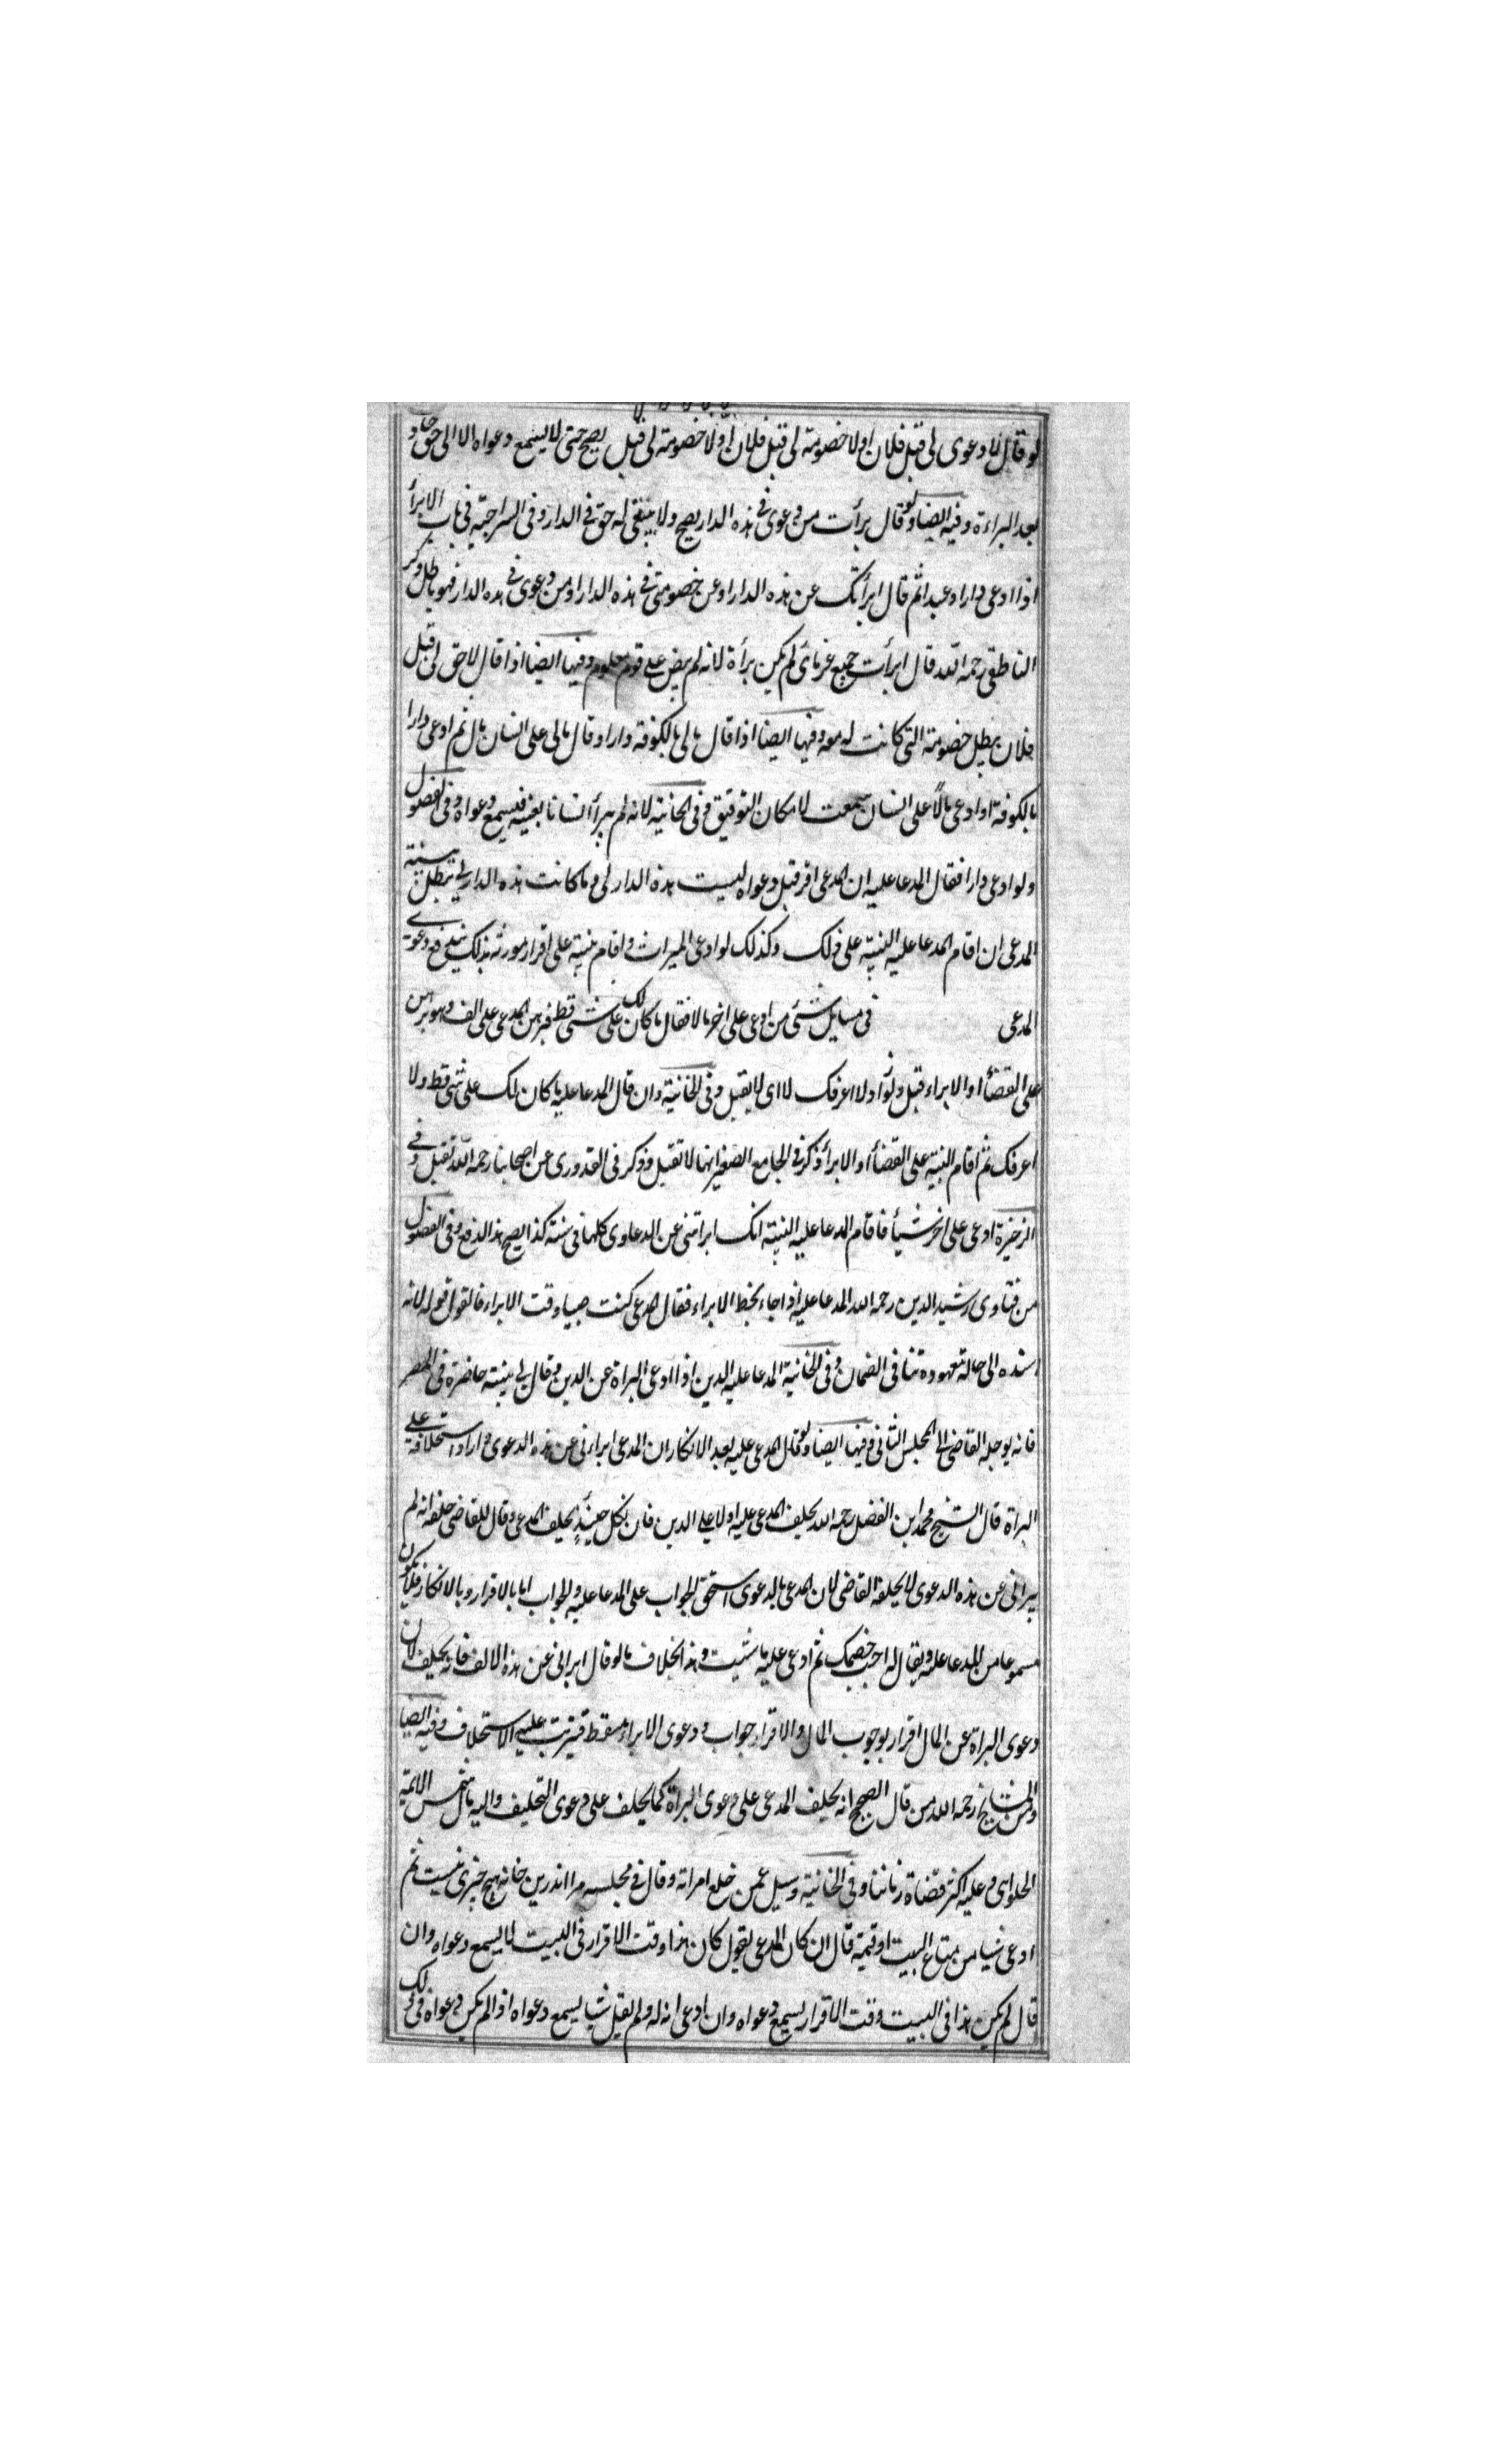 لو قال لا دعوى لى قبل فلان او لا خصومة لى قبل فلان او لا خصومة لى قبل يصح حتى لا يسمع دعواه الا الى حق حادث
بعد البراءة وفيه ايضا ولو قال برأت من دعوى فى هذه الدار يصح ولا يبقى له حق فى الدار وفى السراجيه فى باب الابرأ
اذا ادعى دارا او عبدا ثم قال ابرأتك عن هذه الدار او عن خصومتى فى هذه الدار او من دعوى فى هذه الدار فهو باطل وذكر
الناطقى رحمه الله قال ابرأت جميع غرمائى لم يكن برأة لانه لم ينص على قوم معلوم وفيها ايضا اذا قال لا حق لى قبل
فلان يبطل خصومة التى كانت له معه وفيها ايضا اذا قال مالى بالكوفة دار او قال مالى على انسان مال ثم ادعى دارا
بالكوفة او ادعى مالاً على انسان سمعت لامكان التوفيق وفى الخانية لانه لم يبرأ انسانا بعينه فيسمع دعواه وفى الفصول
ولو ادعى دارا فقال المدعا عليه ان المدعى اقر قبل دعواه ليست هذه الدار لى وما كانت هذه الدار لى تبطل بينة
المدعى ان اقام المدعا عليه البينة على ذلك وكذلك لو ادعى الميراث واقام بينة على اقرار مورثه بذلك يندفع دعوى
المدعى فى مسايل شتى من ادعى على اخر مالا فقال ما كان لك على شئ قط فبرهن المدعى على الف وهو برهن
على القضأ او الابراء قبل ولو زاد ولا اعرفك لا اى لا يقبل وفى الخانية وان قال المدعا عليه ما كان لك على شئ قط ولا
اعرفك ثم اقام البينة على القضأ او الابرأ ذكر فى الجامع الصغير انها لا تقبل وذكر فى القدورى عن اصحابنا رحمه الله تقبل وفى
الذخيرة ادعى على اخر شيأ فاقام المدعا عليه البينة انك ابراتنى عن الدعاوى كلها فى سنة كذا يصح هذا الدفع وفى الفصول
من فتاوى رشيد الدين رحمه الله المدعا عليه اذا جاء بخط الابراء فقال المدعى كنت صبيا وقت الابراء فالقول قوله لانه
اسنده الى حالة معهودة تنافى الضمان وفى الخانية المدعا عليه الدين اذا ادعى البراة عن الدين وقال لى بينة حاضرة فى المصر
فانه يوجله القاضى الى المجلس الثانى وفيها ايضا ولو قال المدعى عليه بعد الانكار ان المدعى ابراءنى عن هذه الدعوى واراد استحلافه على
البراة قال الشيخ محمد ابن الفضل رحمه الله يحلف المدعى عليه اولا على الدين فان نكل حينئذٍ يحلف المدعى وقال للقاضى حلفه انه لم
يبرانى عن هذه الدعوى لا يحلفه القاضى لان المدعى بالدعوى استحق الجواب على المدعا عليه والجواب اما بالاقرار وبالانكار فلا يكون
مسموعا من المدعا عليه ويقال له اجب خصمك ثم ادعى عليه ما شيت وهذا بخلاف ما لو قال ابرانى عن هذه الالف فانه يحلف لان
دعوى البراة عن المال اقرار بوجوب المال والاقرار جواب ودعوى الابراء مسقط فيترتب عليه الاستحلاف وفيه ايضا
ومن المشايخ رحمه الله من قال الصحيح انه يحلف المدعى على دعوى البراة كما يحلف على دعوى التحليف واليه مال شمس الائمة
الحلوانى وعليه اكثر قضاة زماننا وفى الخانية وسيل عمن خلع امراته وقال فى مجلسه مرا اندرين خانه هيچ چيزى نيست ثم
ادعى شيا من متاع البيت او قيمة قال ان كان المدعى يقول كان هذا وقت الاقرار فى البيت لا يسمع دعواه وان
قال لم يكن هذا فى البيت وقت الاقرار يسمع دعواه وان ادعى انه له ولم يقل شيا يسمع دعواه اذا لم يكن دعواه فى ذلك